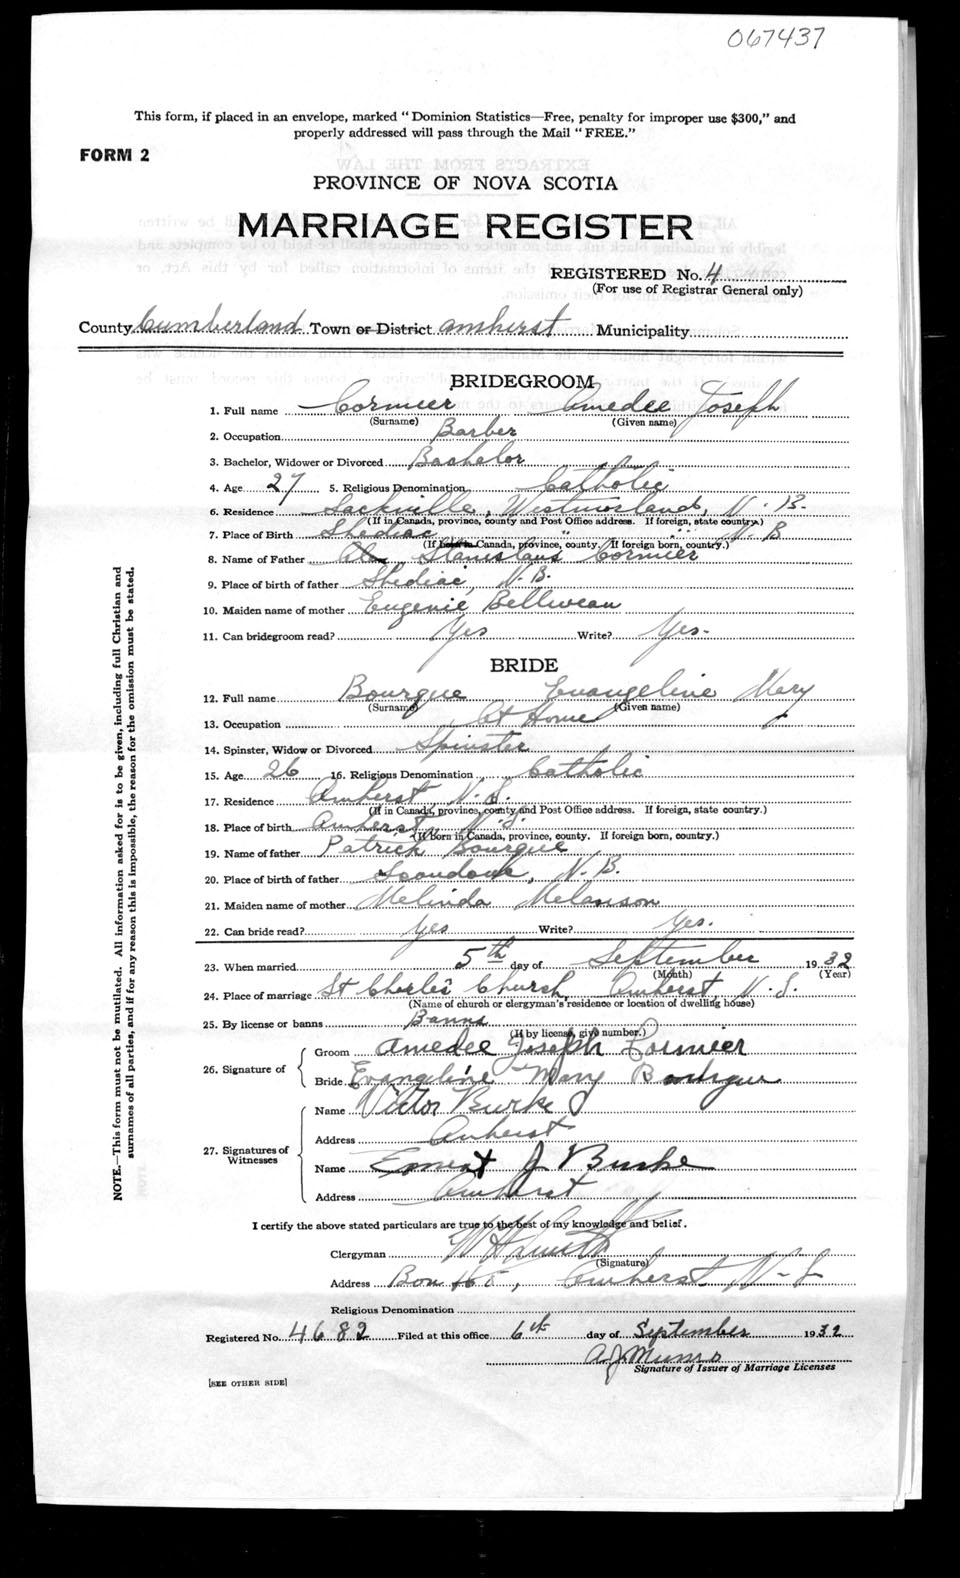 067437
This form, if placed in an envelope, marked "Dominion Statistics—Free, penalty for improper use $300," and
properly addressed will pass through the Mail "FREE."
FORM 2
PROVINCE OF NOVA SCOTIA
MARRIAGE REGISTER
REGISTERED No. 4
(For use of Registrar General only)
County Cumberland Town or District Amherst Municipality
BRIDEGROOM
1. Full name Cormier Amedee Joseph
(Surname) (Given name)
2. Occupation Barber
3. Bachelor, Widower or Divorced Bachelor
4. Age 27 5. Religious Denomination Catholic
6. Residence Sackville, Westmorland, N.B.
(If in Canada, province, county and Post Office address. If foreign, state country.)
7. Place of Birth Shediac " " N.B
(If born in Canada, province, county. If foreign born, country.)
8. Name of Father Stanislaus Cormier
9. Place of birth of father Shediac, N.B.
10. Maiden name of mother Eugenie Belliveau
11. Can bridegroom read? Yes Write? Yes.
BRIDE
12. Full name Bourque Evangeline Mary
(Surname) (Given name)
13. Occupation At Home
14. Spinster, Widow or Divorced Spinster
15. Age 26 16. Religious Denomination Catholic
17. Residence Amherst N.S.
(If in Canada, province, county and Post Office address. If foreign, state country.)
18. Place of birth Amherst, N.S.
(If Born in Canada, province, county. If foreign born, country.)
19. Name of father Patrick Bourque
20. Place of birth of father N.B.
21. Maiden name of mother Melinda Melanson
22. Can bride read? Yes Write? Yes.
23. When married 5th day of September 1932
(Month) (Year)
24. Place of marriage St Charles Church, Amherst, N.S.
(Name of church or clergyman's residence or location of dwelling house)
25. By license or banns Banns
(If by license, give number.)
26. Signature of Groom Amedee Joseph Cormier
Bride Evangeline Mary Bourque
27. Signatures of Witnesses
Name Victor Burke
Address Amherst
Name Ernest J Burke
Address Amherst
I certify the above stated particulars are true to the best of my knowledge and belief.
Clergyman
(Signature)
Address Box Amherst N.S
Religious Denomination
Registered No. 4682 Filed at this office 6th day of September 1932
A J Munro
Signature of Issuer of Marriage Licenses
[SEE OTHER SIDE]
NOTE.—This form must not be mutilated. All information asked for is to be given, including full Christian and
surnames of all parties, and if for any reason this is impossible, the reason for the omission must be stated.